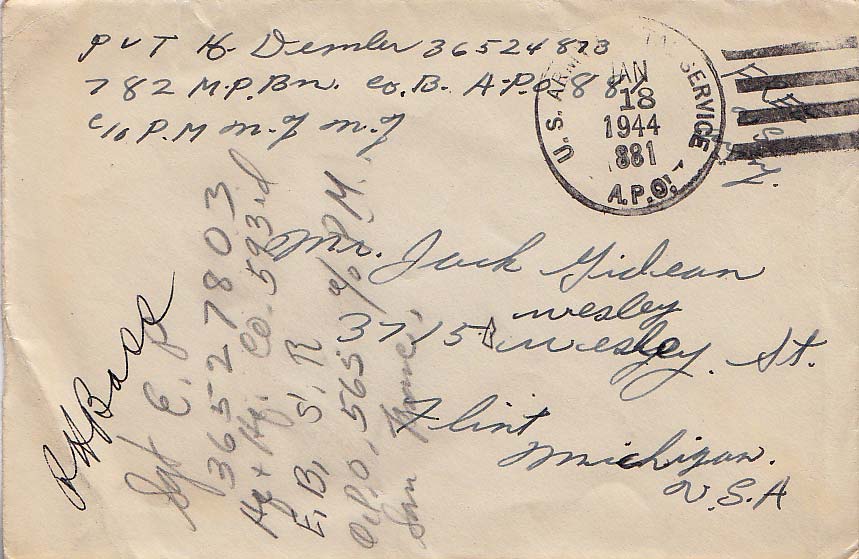 Pvt H. Demler 36524873
782 M.P.Bn. Co.B. A.P.O. 881
c/o P.M n.y n.y
U.S. ARMY SERVICE
JAN
18
1944
881
A.P.O.
Free
Mr. Jack Gidean
wesley
3715 wesley. St.
Flint
Michigan.
U.S.A
Sgt E.
36527803
Hq + Hq. Co. 593rd
E.B, S, R
A.P.O, 565 % P.M.
San
RHBass